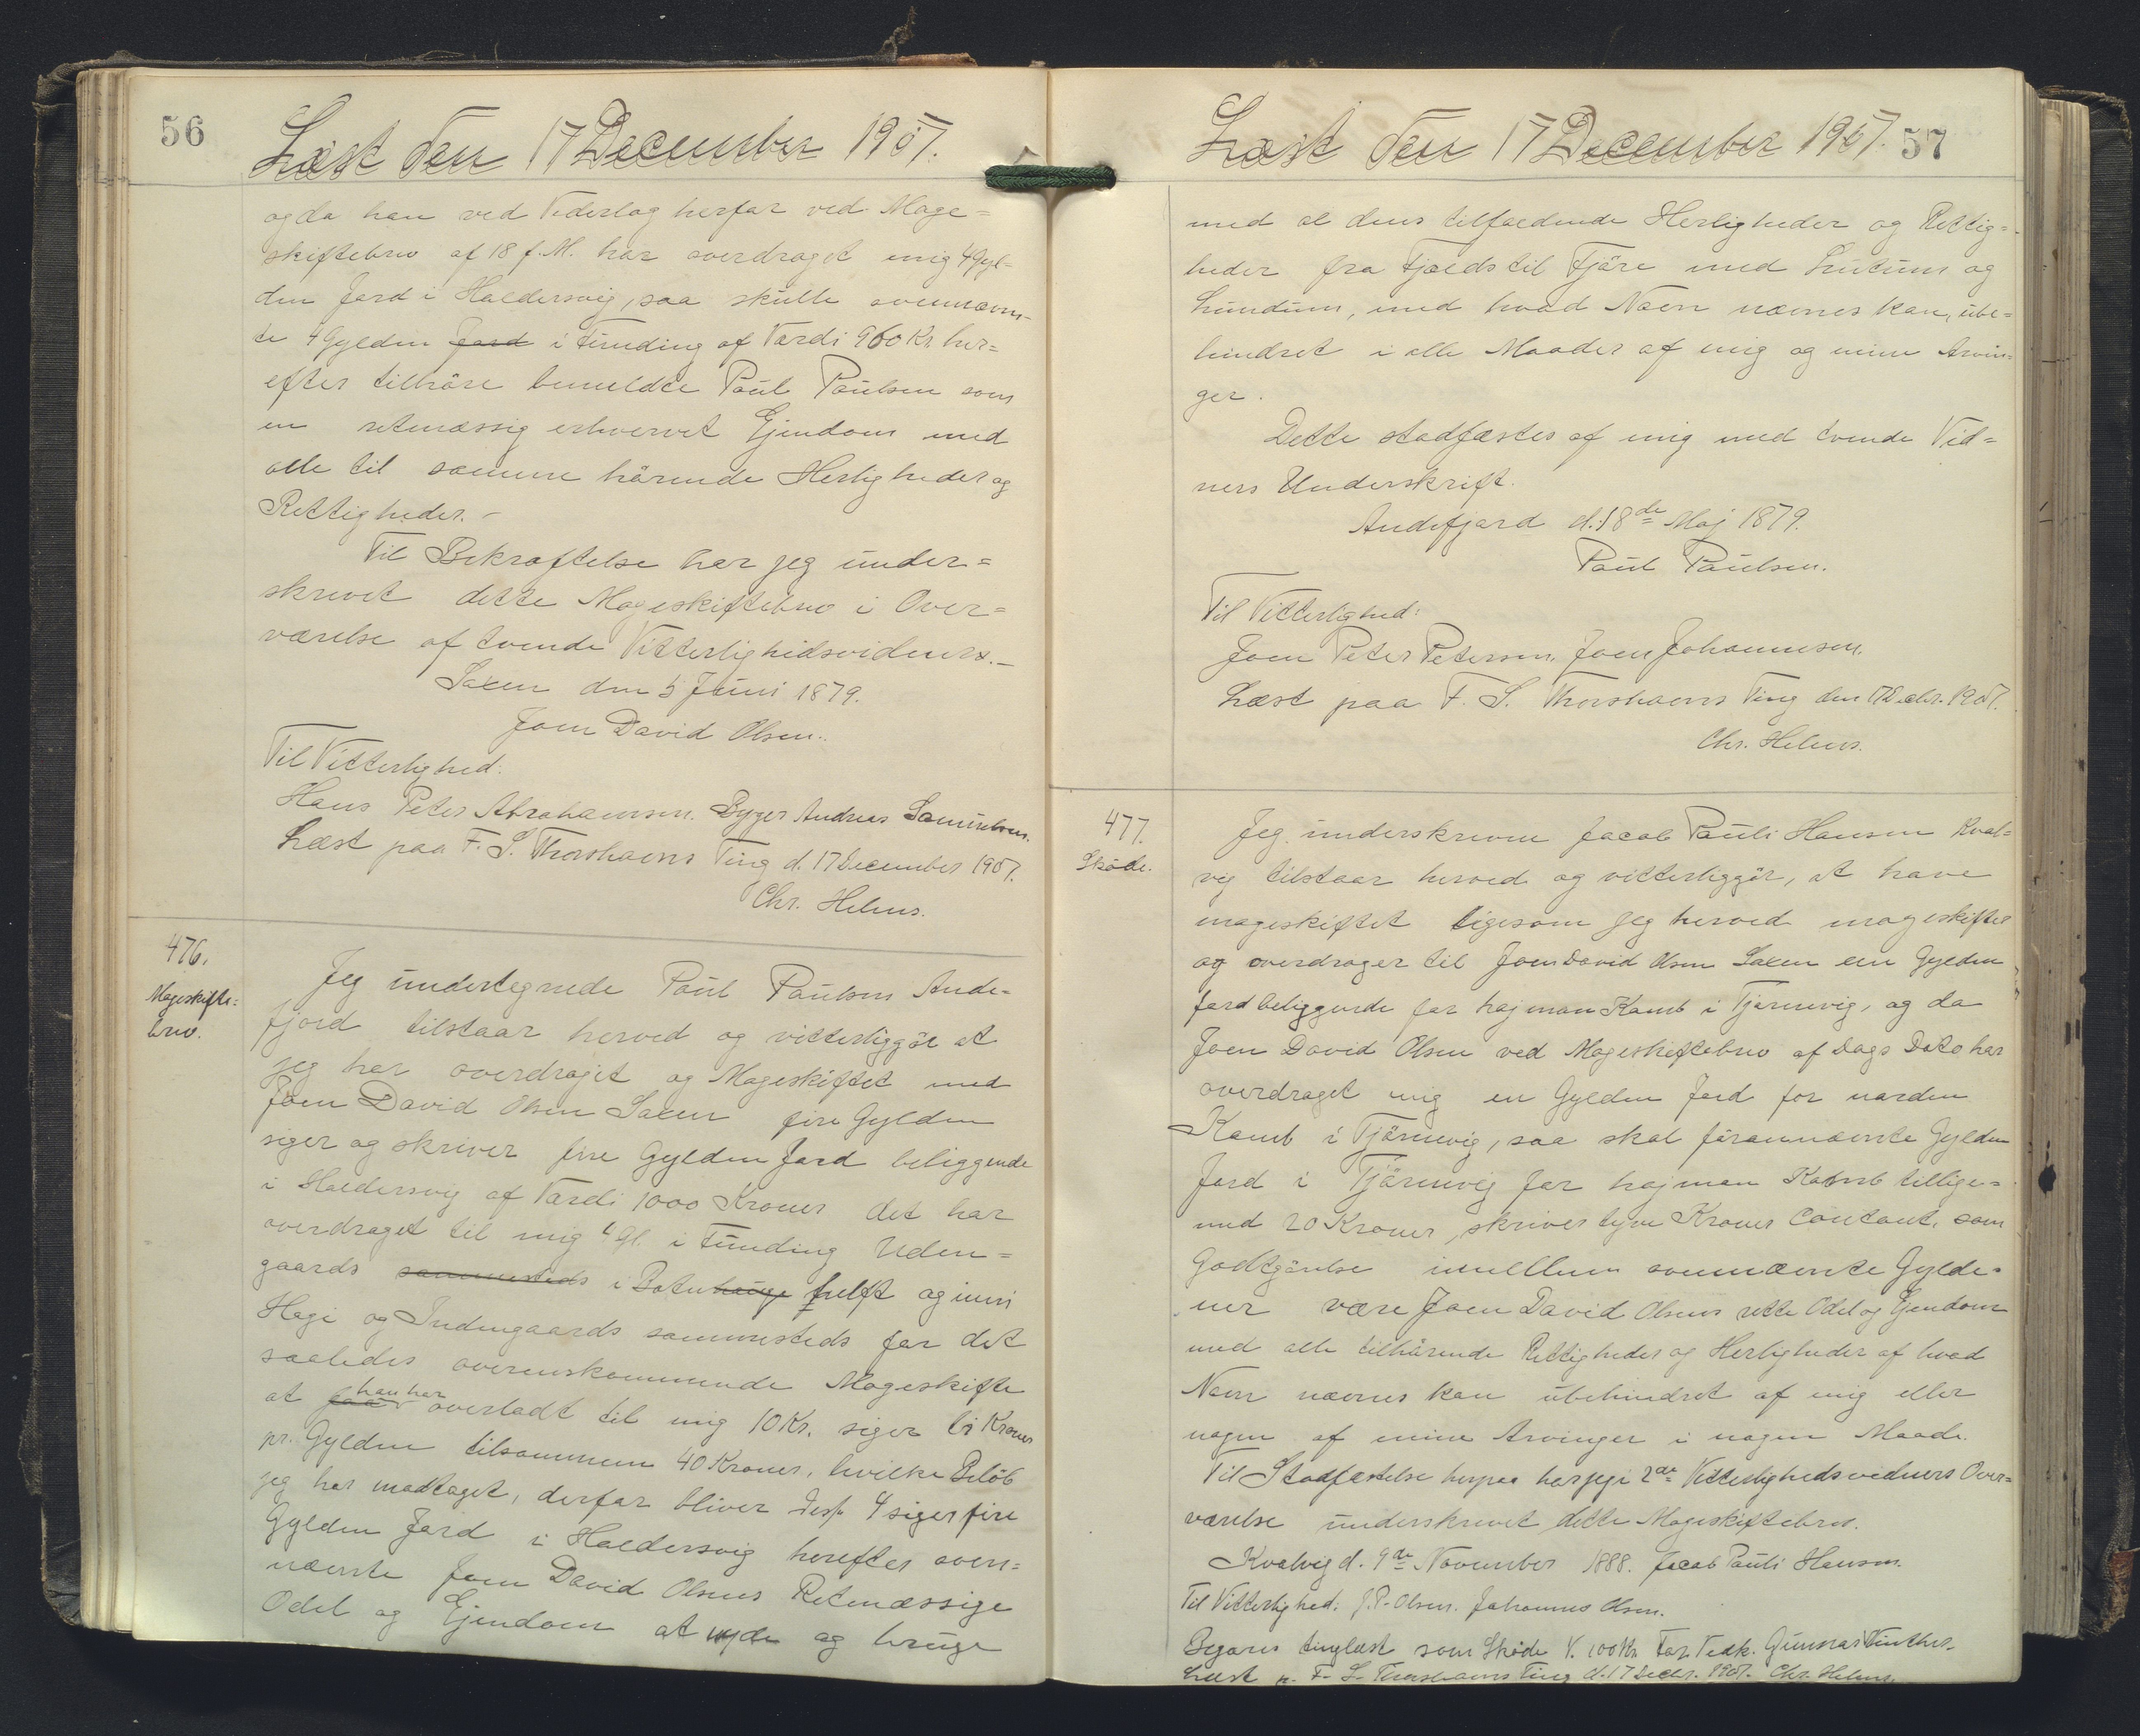 56
Læst den 17 December 1907.
og da han ved Vederlag herfor ved Mage=
skiftebrev af 18 f. M. har overdraget mig 4 Gyl=
den Jord i Haldersvig, saa skulle ovennævn=
te 4 Gylden Jord i Funding af Værdi 960 Kr. her=
efter tilhöre bemeldte Poul Poulsen som
en retmæssig erhvervet Ejendom med
alle til samme hörende Herligheder og
Rettigheder. -
Til Bekræftelse har jeg under=
skrevet dette Mageskiftebrev i Over=
værelse af tvende Vitterlighedsvidners. -
Saxen den 5 Juni 1879.
Joen David Olsen.
Til Vitterlighed:
Hans Peter Abrahamsen. Byger Andreas Samuelsen.
Læst paa F. S. Thorshavns Ting d. 17 December 1907.
Chr. Helms.
476.
Mageskifte=
brev.
Jeg undertegnede Poul Poulsen Ande=
fjord tilstaar herved og vitterliggör at
jeg har overdraget og Mageskiftet med
Joen David Olsen Saxen fire Gylden
siger og skriver fire Gylden Jord beliggende
i Haldersvig af Værdi 1000 Kroner det har
overdraget til mig 4 Gl. i Funding Uden=
gaards sammesteds i Botn hauge hulft og inni
Hagi og Indengaards sammesteds for det
saaledes overenskommende Mageskifte
at faar han har overladt til mig 10 Kr. siger ti Kroner
pr. Gylden tilsammen 40 Kroner, hvilke Belöb
jeg har modtaget, derfor bliver desf. 4 siger fire
Gylden Jord i Haldersvig herefter oven=
nævnte Joen David Olsens Retmæssige
Odel og Ejendom at nyde og bruge
Læst den 17 December 1907.
57
med al dens tilfaldende Herligheder og Rettig=
heder fra Fjælds til Fjöre med Lutum og
Lundum, med hvad Navn nævnes kan, übe=
hindret i alle Maader af mig og mine Arvin=
ger.
Dette stadfæstes af mig med tvende Vid=
ners Underskrift.
Andefjord d. 18de Maj 1879.
Poul Poulsen.
Til Vitterlighed:
Joen Peter Petersen. Joen Johannesen.
Læst paa F. S. Thorshavns Ting den 17 Decbr. 1907.
Chr. Helms.
477.
Sköde.
Jeg underskrevne Jacob Pauli Hansen Kval=
vig tilstaar herved og vitterliggör, at have
mageskiftet ligesom jeg herved mageskifter
og overdrager til Joen David Olsen Saxen een Gylden
Jord beliggende for hajman Kamb i Tjörnevig, og da
Joen David Olsen ved Mageskiftebrev af Dags Dato har
overdraget mig en Gylden Jord for norden
Kamb i Tjörnevig, saa skal förannævnte Gylden
Jord i Tjörnevig for hajman Kamb tillige=
med 20 Kroner, skriver tyve Kroner Contant, som
Godtgörelse imellem ovennævnte Gylde=
ner være Joen David Olsens rette Odel og Ejendom
med alle tilhörende Rettigheder og Herligheder af hvad
Navn nævnes kan übehindret af mig eller
nogen af mine Arvinger i nogen Maade.
Til Stadfæstelse herpaa har jeg i 2de Vitterlighedsvidners Over=
værelse underskrevet dette Mageskiftebrev.
Kvalvig d. 9de November 1888. Jacob Pauli Hansen.
Til Vitterlighed: J. P. Olsen. Johannes Olsen.
Begæres tinglæst som Sköde V. 100 Kr. For Vedk. Gunnar Vinther.
Læst p. F. S. Thorshavns Ting d. 17 Decbr. 1907. Chr. Helms.